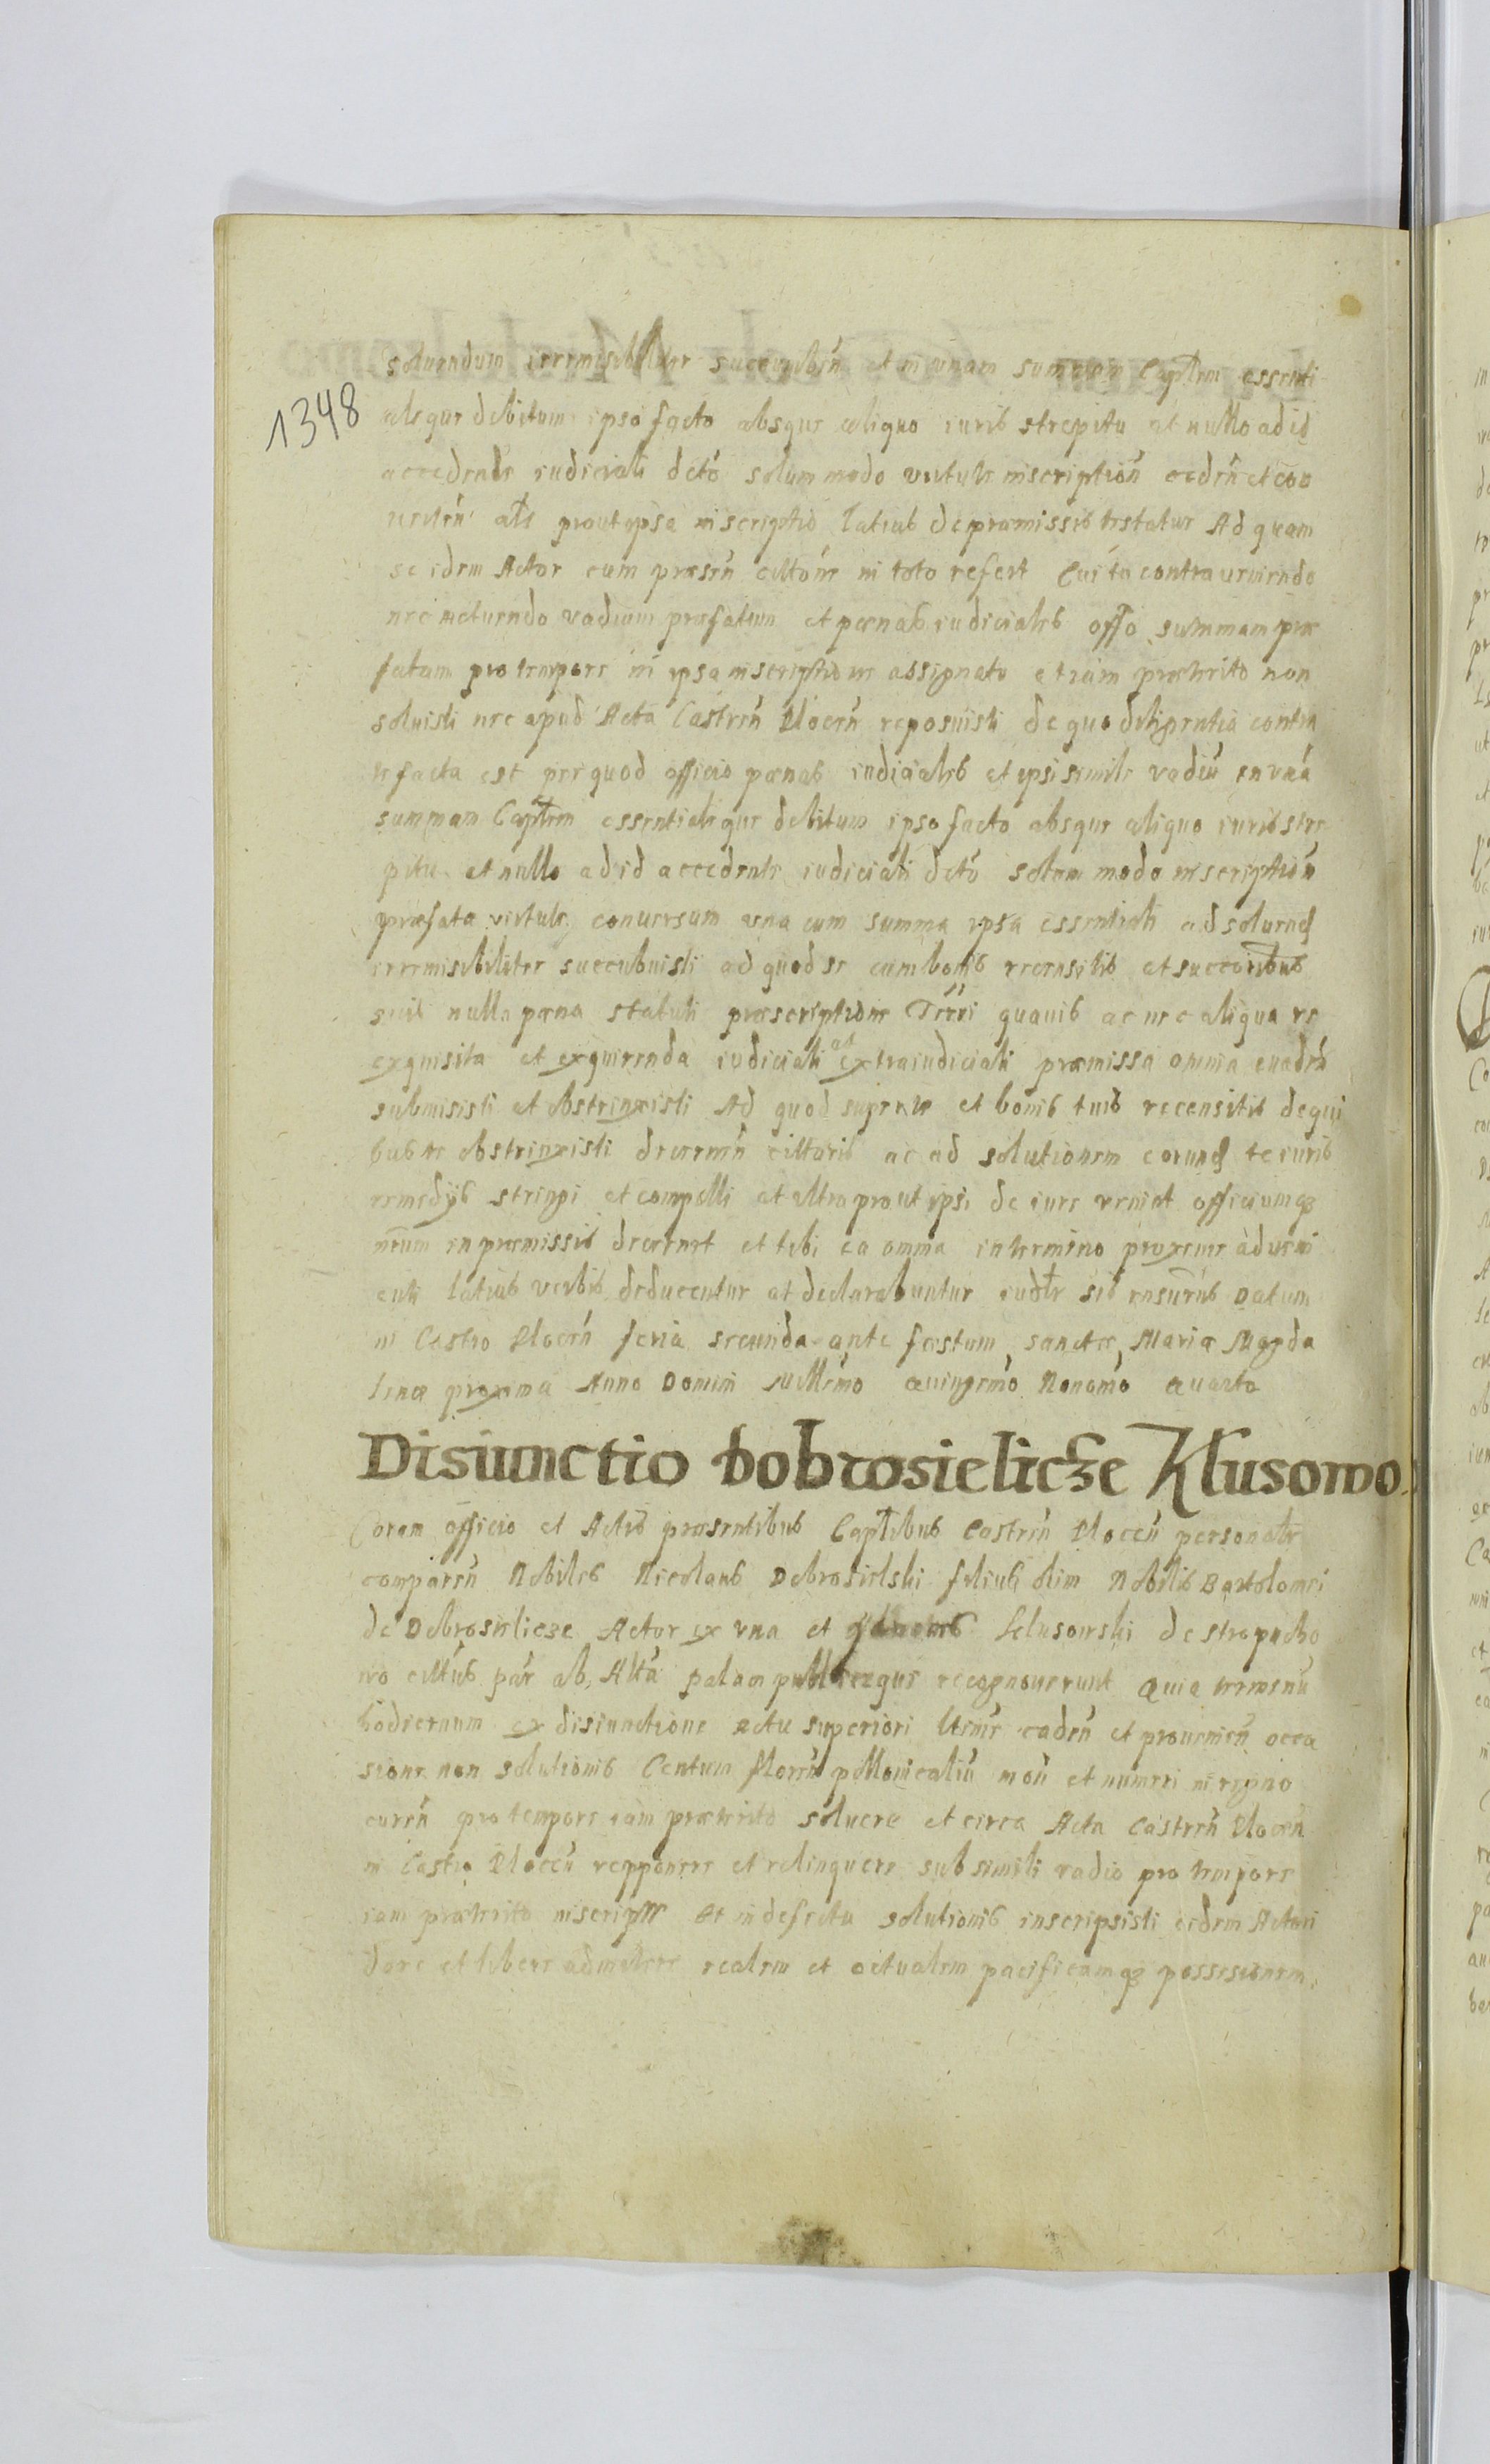 soluendum irremisibiliter succumben et in unam summam Capłem essenti
aleque debitum ipso facto absque aliquo iuris strepitu et nullo ad id
accedente iudiciali dcto solummodo virtute inscription cedn et con
uerten als prout ipsa inscriptio latius de præmissis testatur Ad quam
se idem Actor cum præsen cittone in toto refert Cui tu contraueniendo
nec metuendo vadium præfatum et pænas iudiciales offo summam præ
fatam pro tempore in ipsa inscriptione assignato et iam præterito non
soluisti nec apud Acta Castren Plocen reposuisti de quo diligentia contra
te facta est per quod officio pænas iudiciales et ipsi simile vadiu in vna
summam Capłem essentialeque debitum ipso facto absque aliquo iuris stre
pitu et nullo ad id accedente iudiciali dcto solum modo inscription
præfatæ virtute conuersum vna cum summa ipsa essentiali ad soluend
irremisibiliter succubuisti ad quod se cum bonis recensitis et succoribus
suis nulla pæna statuti præscriptione Terri quauis ac nec aliqua re
exquisita et exquirenda iudiciali et extraiudiciali præmissa omnia euaden
submisisti et obstrinxisti Ad quod super te et bonis tuis recensitis de qui
bus te obstrinxisti decerni cittaris ac ad solutionem eorund te iuris
remedijs stringi et compelli et ultra prout ipsi de iure veniat officiumq3
nrum in præmissis decernet et tibi ea omnia in termino proxime adueni
enti latius verbis deducentur et declarabuntur iudłr sis rnsurus Datum
in Castro Plocen feria secunda ante festum sanctæ Mariæ Magda
lenæ proxima Anno Domini Millmo Quingemo Nonamo Quarto
Disiunctio dobrosielicze Klusowo
Coram officio et Actis præsentibus Capłibus Castren Plocen personałr
comparen Nobiles Nicolaus Dobrosielski filius olim Nobilis Bartolomei
de Dobrosielicze Actor ex vna et Klusowski de stropucho
wo cittus par ab Alta palam publiceque recognouerunt Quia terminu
hodiernum ex disiunctione actu superiori ltime caden et prouenien occa
sione non solutionis Centum floren pollonicaliu mon et numeri in regno
curen pro tempore iam præterito soluere et circa Acta Castren Plocen
in Castro Plocen repponere et relinquere sub simili vadio pro tempore
iam præterito inscript Et in defectu solutionis inscripsisti eidem Actori
dare et libere admittere realem et actualem pacificamq3 possesionem
1348